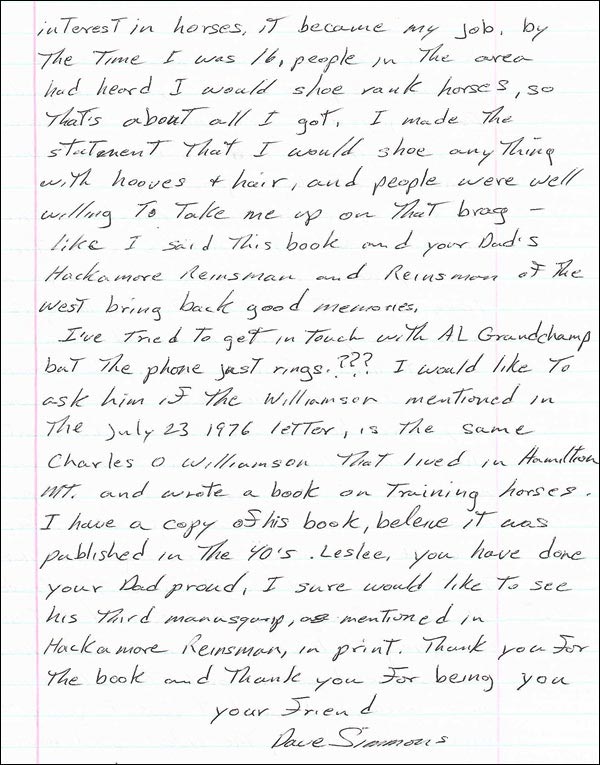 interest in horses, it became my job, by
the time I was 16, people in the area
had heard I would shoe rank horses, so
that's about all I got. I made the
statement that I would shoe anything
with hooves + hair, and people were well
willing to take me up on that brag –
like I said this book and your Dad's
Hackamore Reinsman and Reinsman of the
West bring back good memories.
I've tried to get in touch with AL Grandchamp
but the phone just rings.??? I would like to
ask him if the Williamson mentioned in
the July 23 1976 letter, is the same
Charles O Williamson that lived in Hamilton
MT. and wrote a book on training horses.
I have a copy of his book, beleve it was
published in the 40's. Leslee, you have done
your Dad proud, I sure would like to see
his third manusqurp, as mentioned in
Hackamore Reinsman, in print. Thank you for
the book and thank you for being you
your friend
Dave Simmons